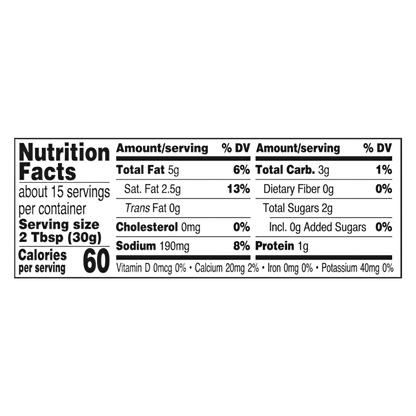 Nutrition
Facts
about 15 servings
per container
Serving size
2 Tbsp (30g)
Calories
per serving 60
Amount/serving % DV
Total Fat 5g 6%
Sat. Fat 2.5g 13%
Trans Fat 0g
Cholesterol 0mg 0%
Sodium 190mg 8%
Amount/serving % DV
Total Carb. 3g 1%
Dietary Fiber 0g 0%
Total Sugars 2g
Incl. 0g Added Sugars 0%
Protein 1g
Vitamin D 0mcg 0% • Calcium 20mg 2% • Iron 0mg 0% • Potassium 40mg 0%